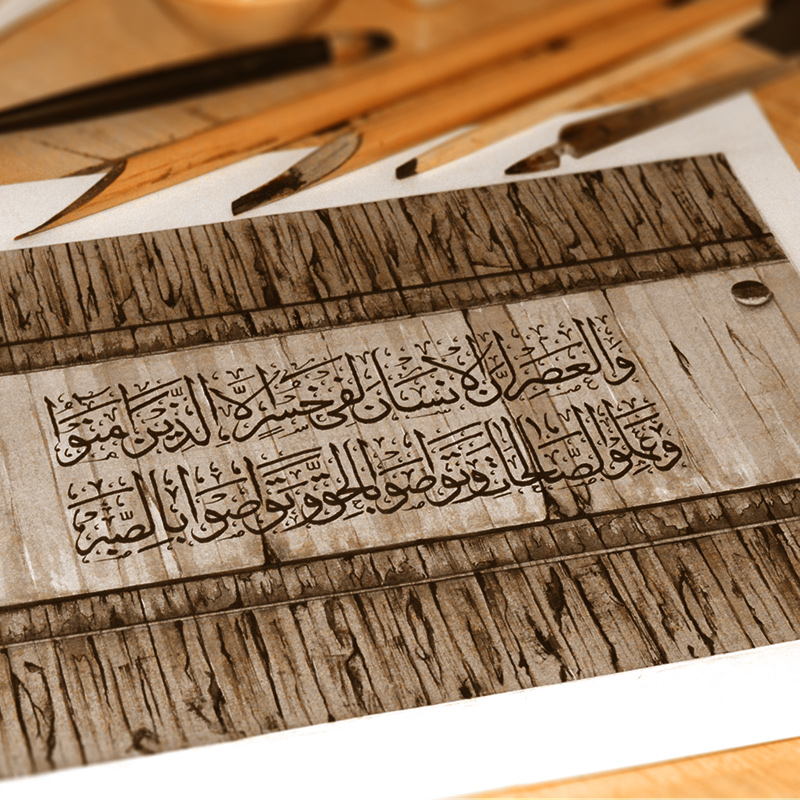 والعصر إن الإنسان لفي خسر إلا الذين آمنوا
وعملوا الصالحات وتواصوا بالحق وتواصوا بالصبر